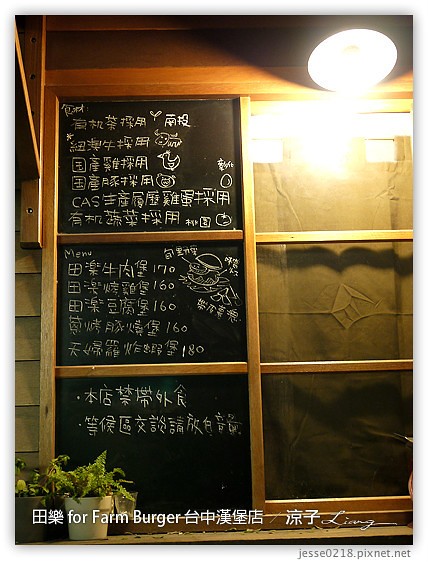 食材:
有机茶採用 南投
*紐澳牛採用
国產雞採用 彰化
国產豚採用
CAS生產履歷雞蛋採用
有机蔬菜採用 桃園
Menu
田楽牛肉堡 170
田楽烤雞堡 160
田楽豆腐堡 160
煎烤豚燒堡 160
天婦羅炸蝦堡 180
·本店禁帶外食
·等候區交談請放低音量
田樂 for Farm Burger 台中漢堡店 / 涼子 Liang
jesse0218.pixnet.net